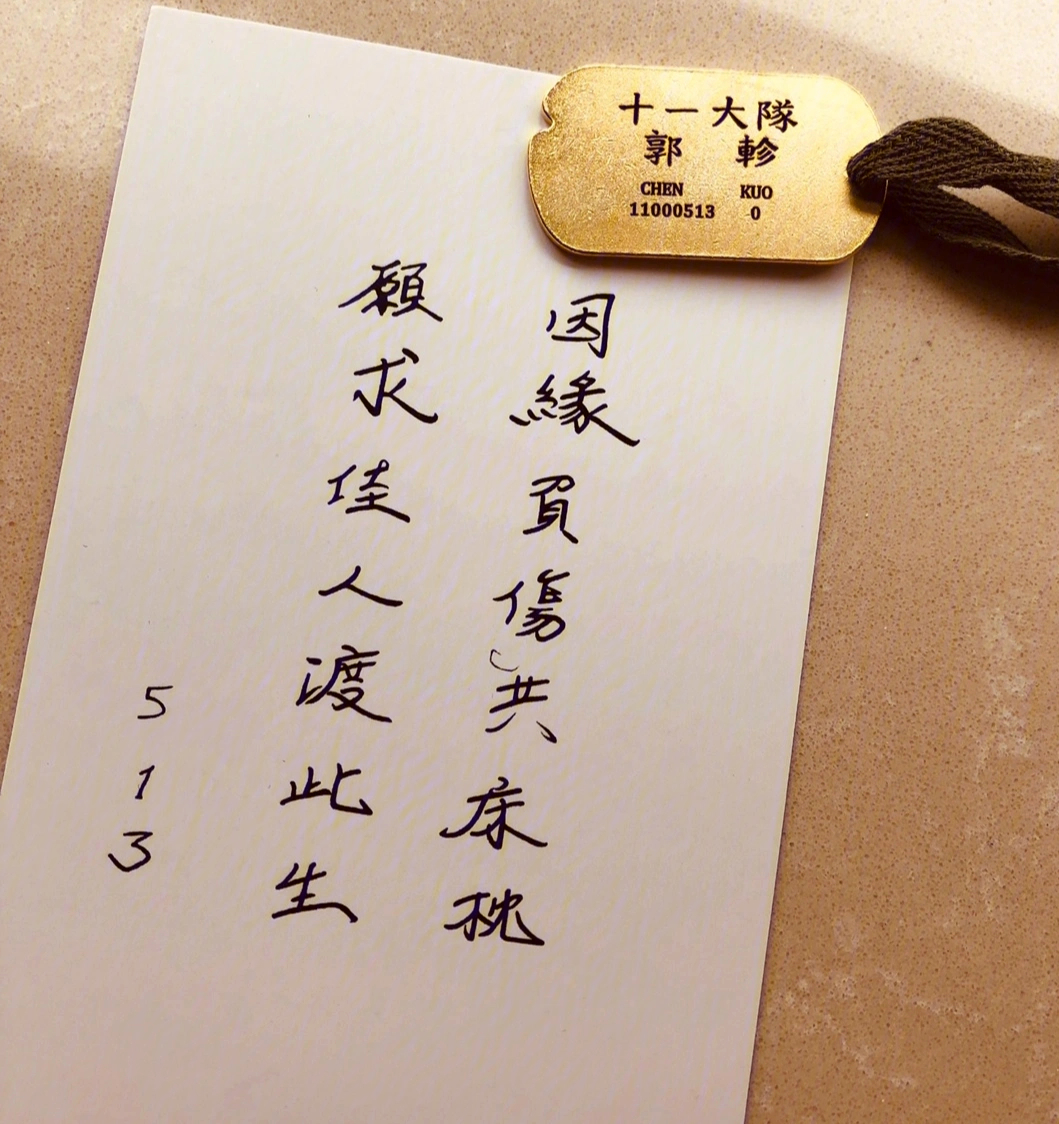 十一大隊
郭 軫
CHEN KUO
11000513 0
因緣負傷共床枕
願求佳人渡此生
513